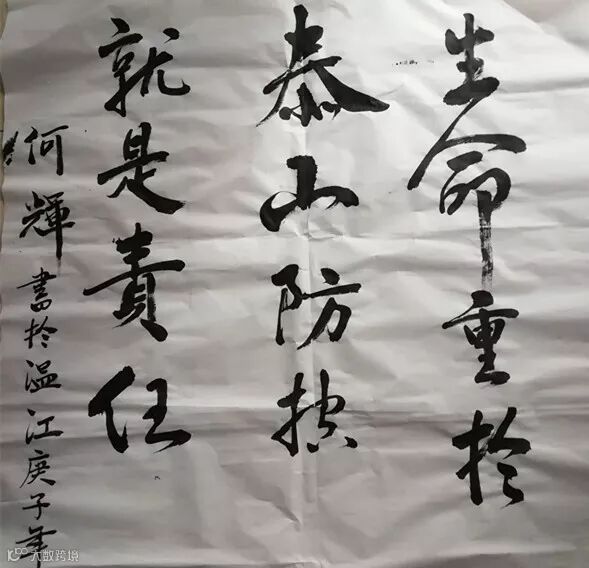 生命重於
泰山防控
就是責任
何輝書於温江庚子年
大数跨境